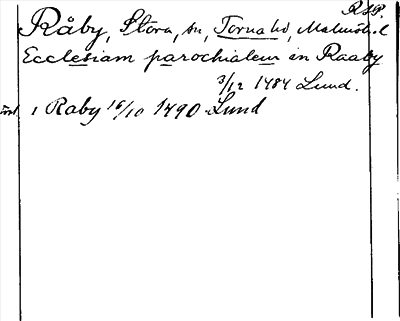 R.A.P.
Råby, Stora, sn, Torna hd, Malmöh. l
Ecclesiam parochialem in Raaby
3/12 1484 Lund.
i Raby 16/10 1490 Lund